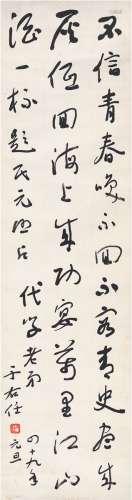 不信青春唤不回不容青史尽成
灰低回海上成功宴万里江山
酒一杯题民元照片
代学老弟
于右任
四十九年
元旦